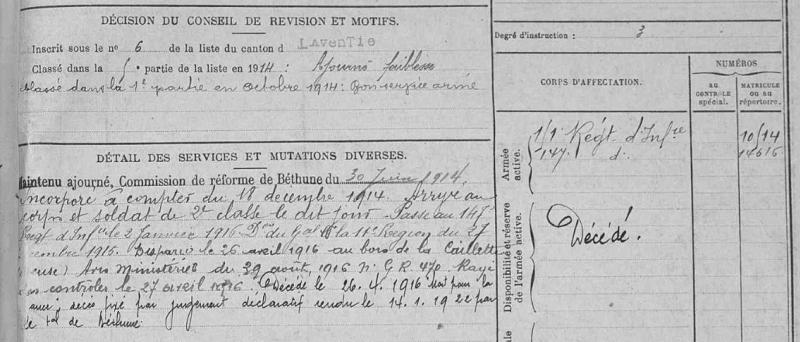 DÉCISION DU CONSEIL DE REVISION ET MOTIFS.
Inscrit sous le nº 6 de la liste du canton d LAVENTIE
Classé dans la 5e partie de la liste en 1914 : Ajourné faiblesse
Classé dans la 1e partie en octobre 1914 : Bon service armé
DÉTAIL DES SERVICES ET MUTATIONS DIVERSES.
Maintenu ajourné, Commission de réforme de Béthune du 30 Juin 1914.
Incorporé à compter du 18 décembre 1914. Arrivé au
corps et soldat de 2e classe le dit jour. Passé au 147e
Regt d'Infie le 2 Janvier 1916 Don du Gal la 11e Region du 27
cembre 1915. Disparu le 26 avril 1916 au bois de la Caillette
euse) Avis Ministériel du 29 août 1916 N. G R 470. Rayé
des contrôles le 27 avril 1916. Décédé le 26.4.1916 pour la
décès fixé par jugement déclaratif rendu le 14.1.1922 par
le tal de Béthune
Degré d'instruction : 3
CORPS D'AFFECTATION.
NUMÉROS
AU CONTRÔLE spécial.
MATRICULE OU AU répertoire.
Armée active.
Regt d'Infie 10/14
147. d. 14616
Disponibilité et réserve de l'armée active.
Décédé.